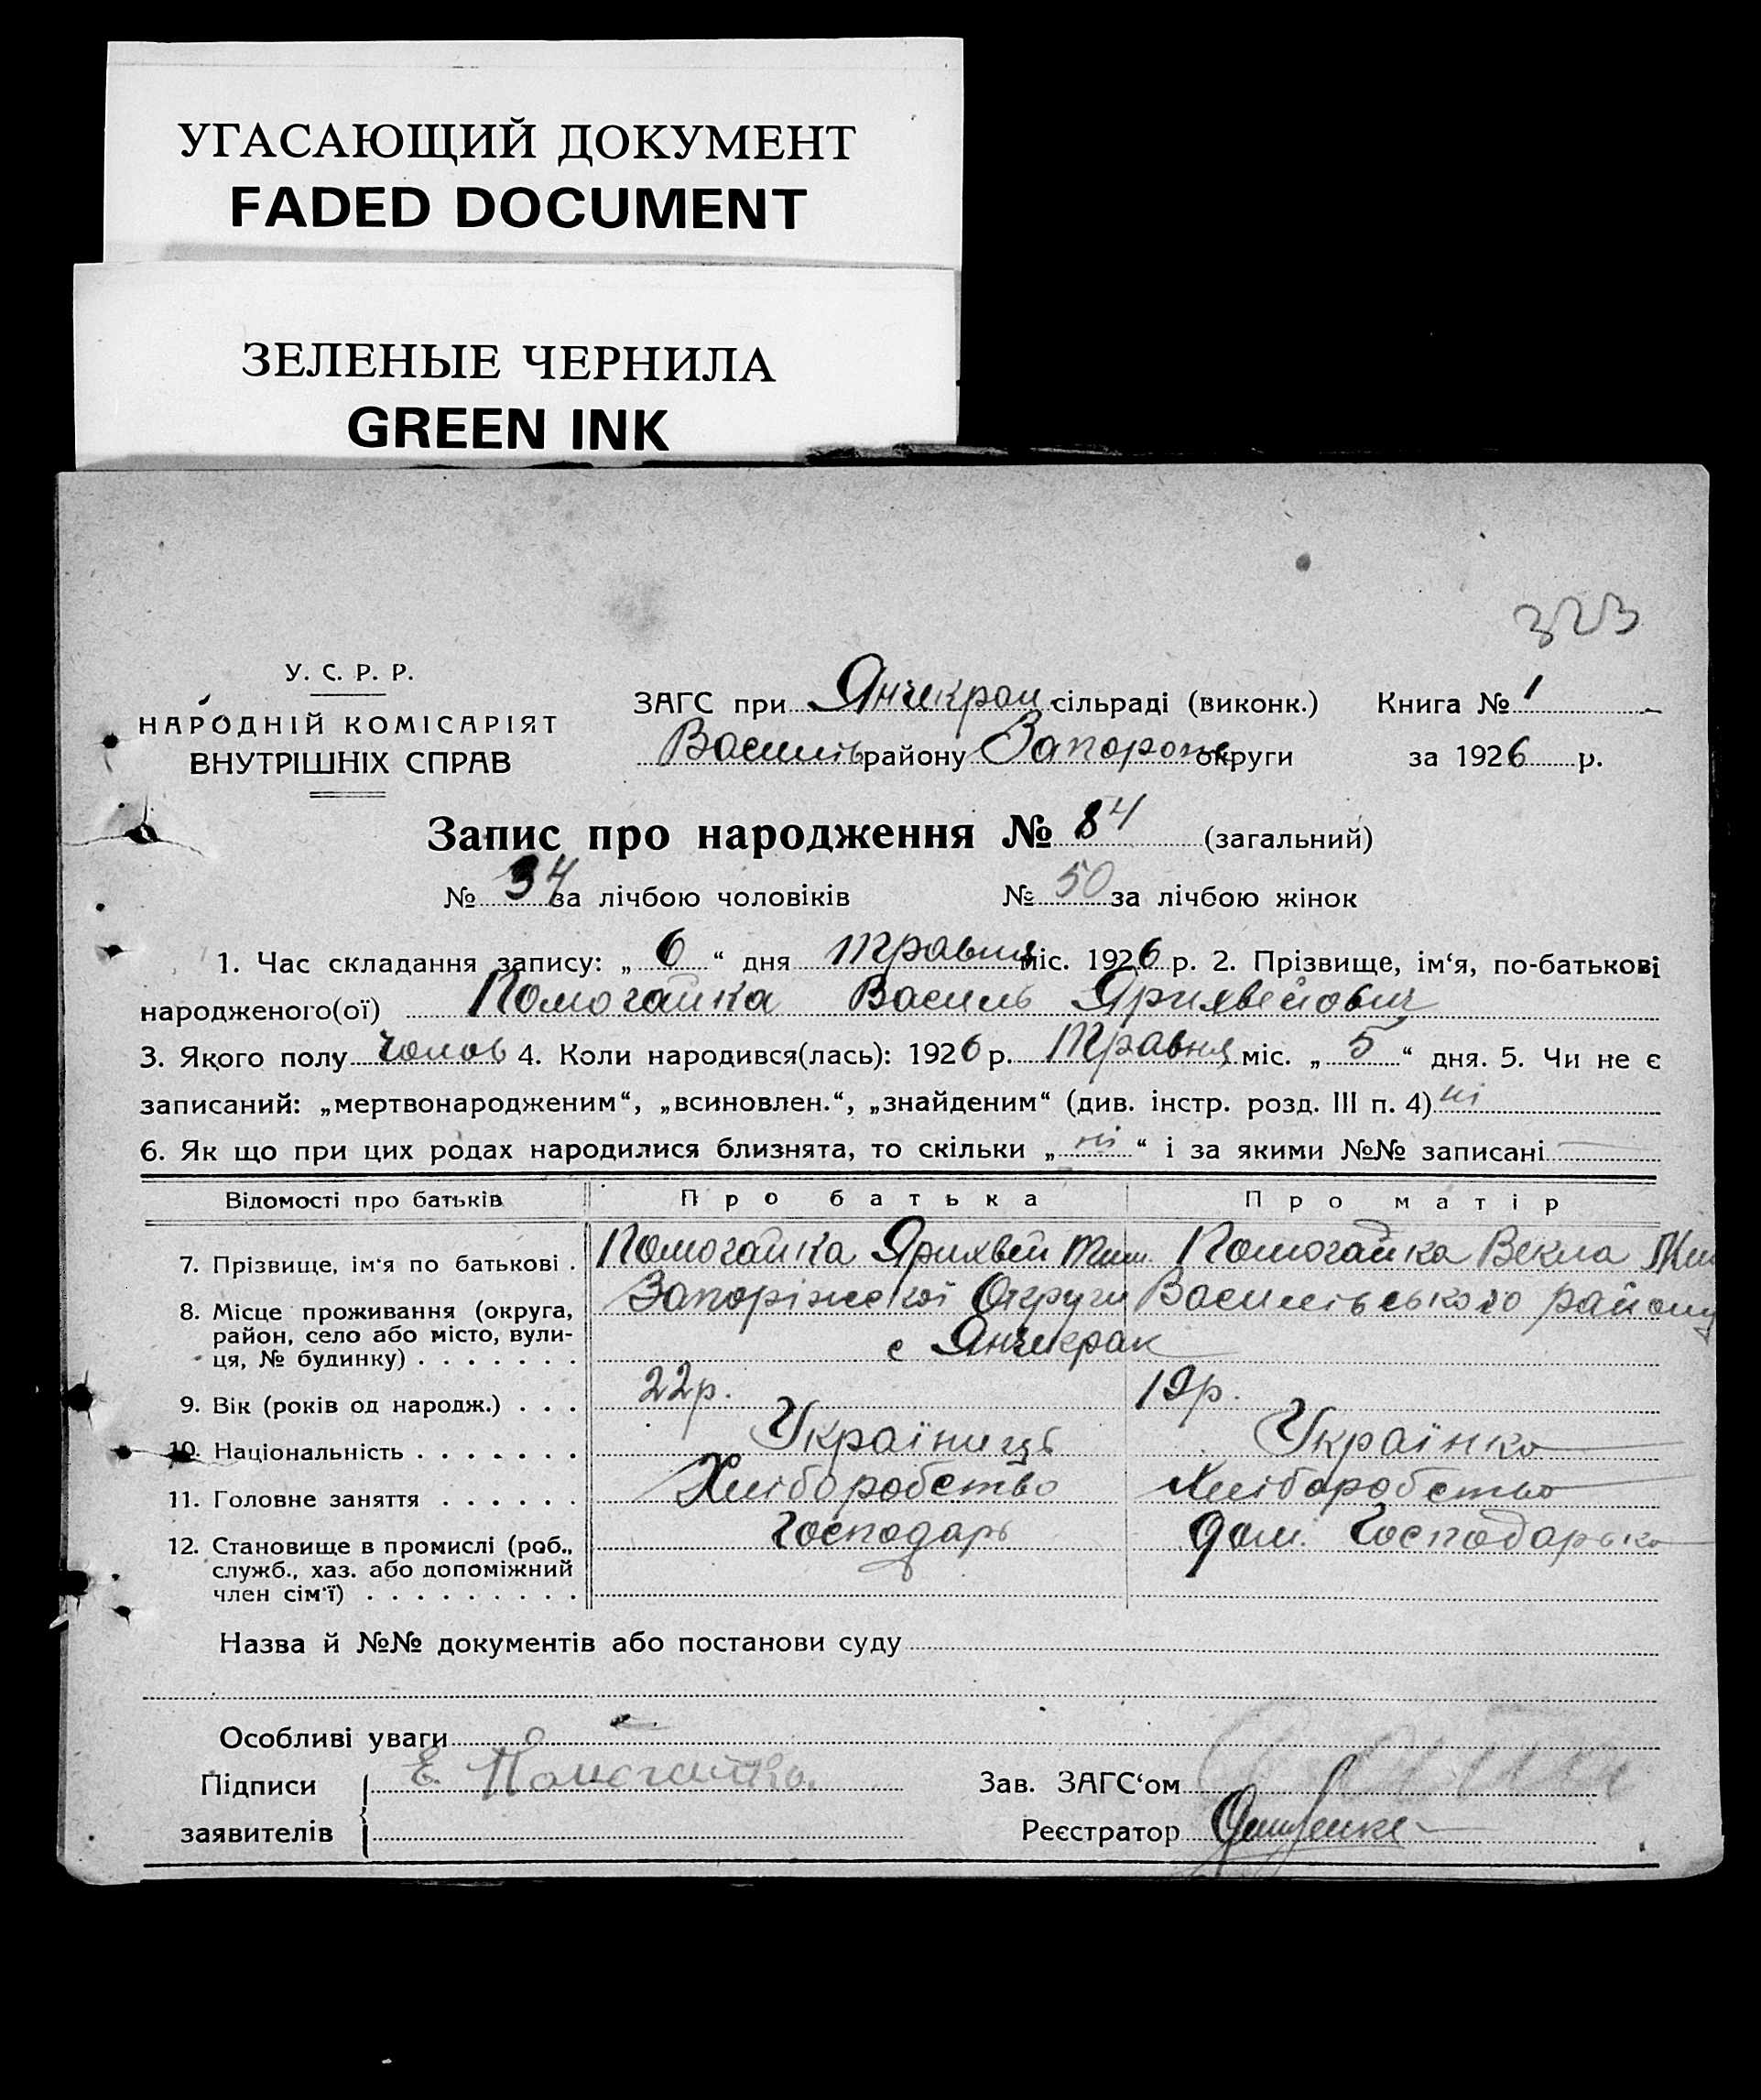 УГАСАЮЩИЙ ДОКУМЕНТ
FADED DOCUMENT
ЗЕЛЕНЫЕ ЧЕРНИЛА
GREEN INK
323
У. С. Р. Р.
НАРОДНІЙ КОМІСАРІЯТ
ВНУТРІШНІХ СПРАВ
ЗАГС при Янчекрак сільраді (виконк.) Книга № 1
Василів району Запорож округи за 1926 р.
Запис про народження № 84 (загальний)
№ 34 за лічбою чоловіків № 50 за лічбою жінок
1. Час складання запису: „ 6 “ дня травня міс. 1926 р. 2. Прізвище, ім‘я, по-батькові
народженого(ої) Помогайка Василь Ярихвейович
3. Якого полу чолов 4. Коли народився(лась): 1926 р. Травня міс. „ 5 “ дня. 5. Чи не є
записаний: „мертвонародженим“, „всиновлен.“, „знайденим“ (див. інстр. розд. III п. 4) ні
6. Як що при цих родах народилися близнята, то скільки „ ні “ і за якими №№ записані
Відомості про батьків Про батька Про матір
7. Прізвище, ім‘я по батькові . Помогайка Ярихвей Тим. Помогайка Векла
8. Місце проживання (округа, Запоріжської Округи Василівського району
район, село або місто, вули-
ця, № будинку) . . . . . . . с Янчекрак
9. Вік (років од народж.) . . . 22р. 19р.
10. Національність . . . . . . . Українець Українка
11. Головне заняття . . . . . . Хліборобство Хліборобство
12. Становище в промислі (роб., Господарь дом. Господарька
служб., хаз. або допоміжний
член сім‘ї) . . . . . . . . .
Назва й №№ документів або постанови суду
Особливі уваги
Підписи Е. Помогайка. Зав. ЗАГС‘ом
заявителів Реєстратор